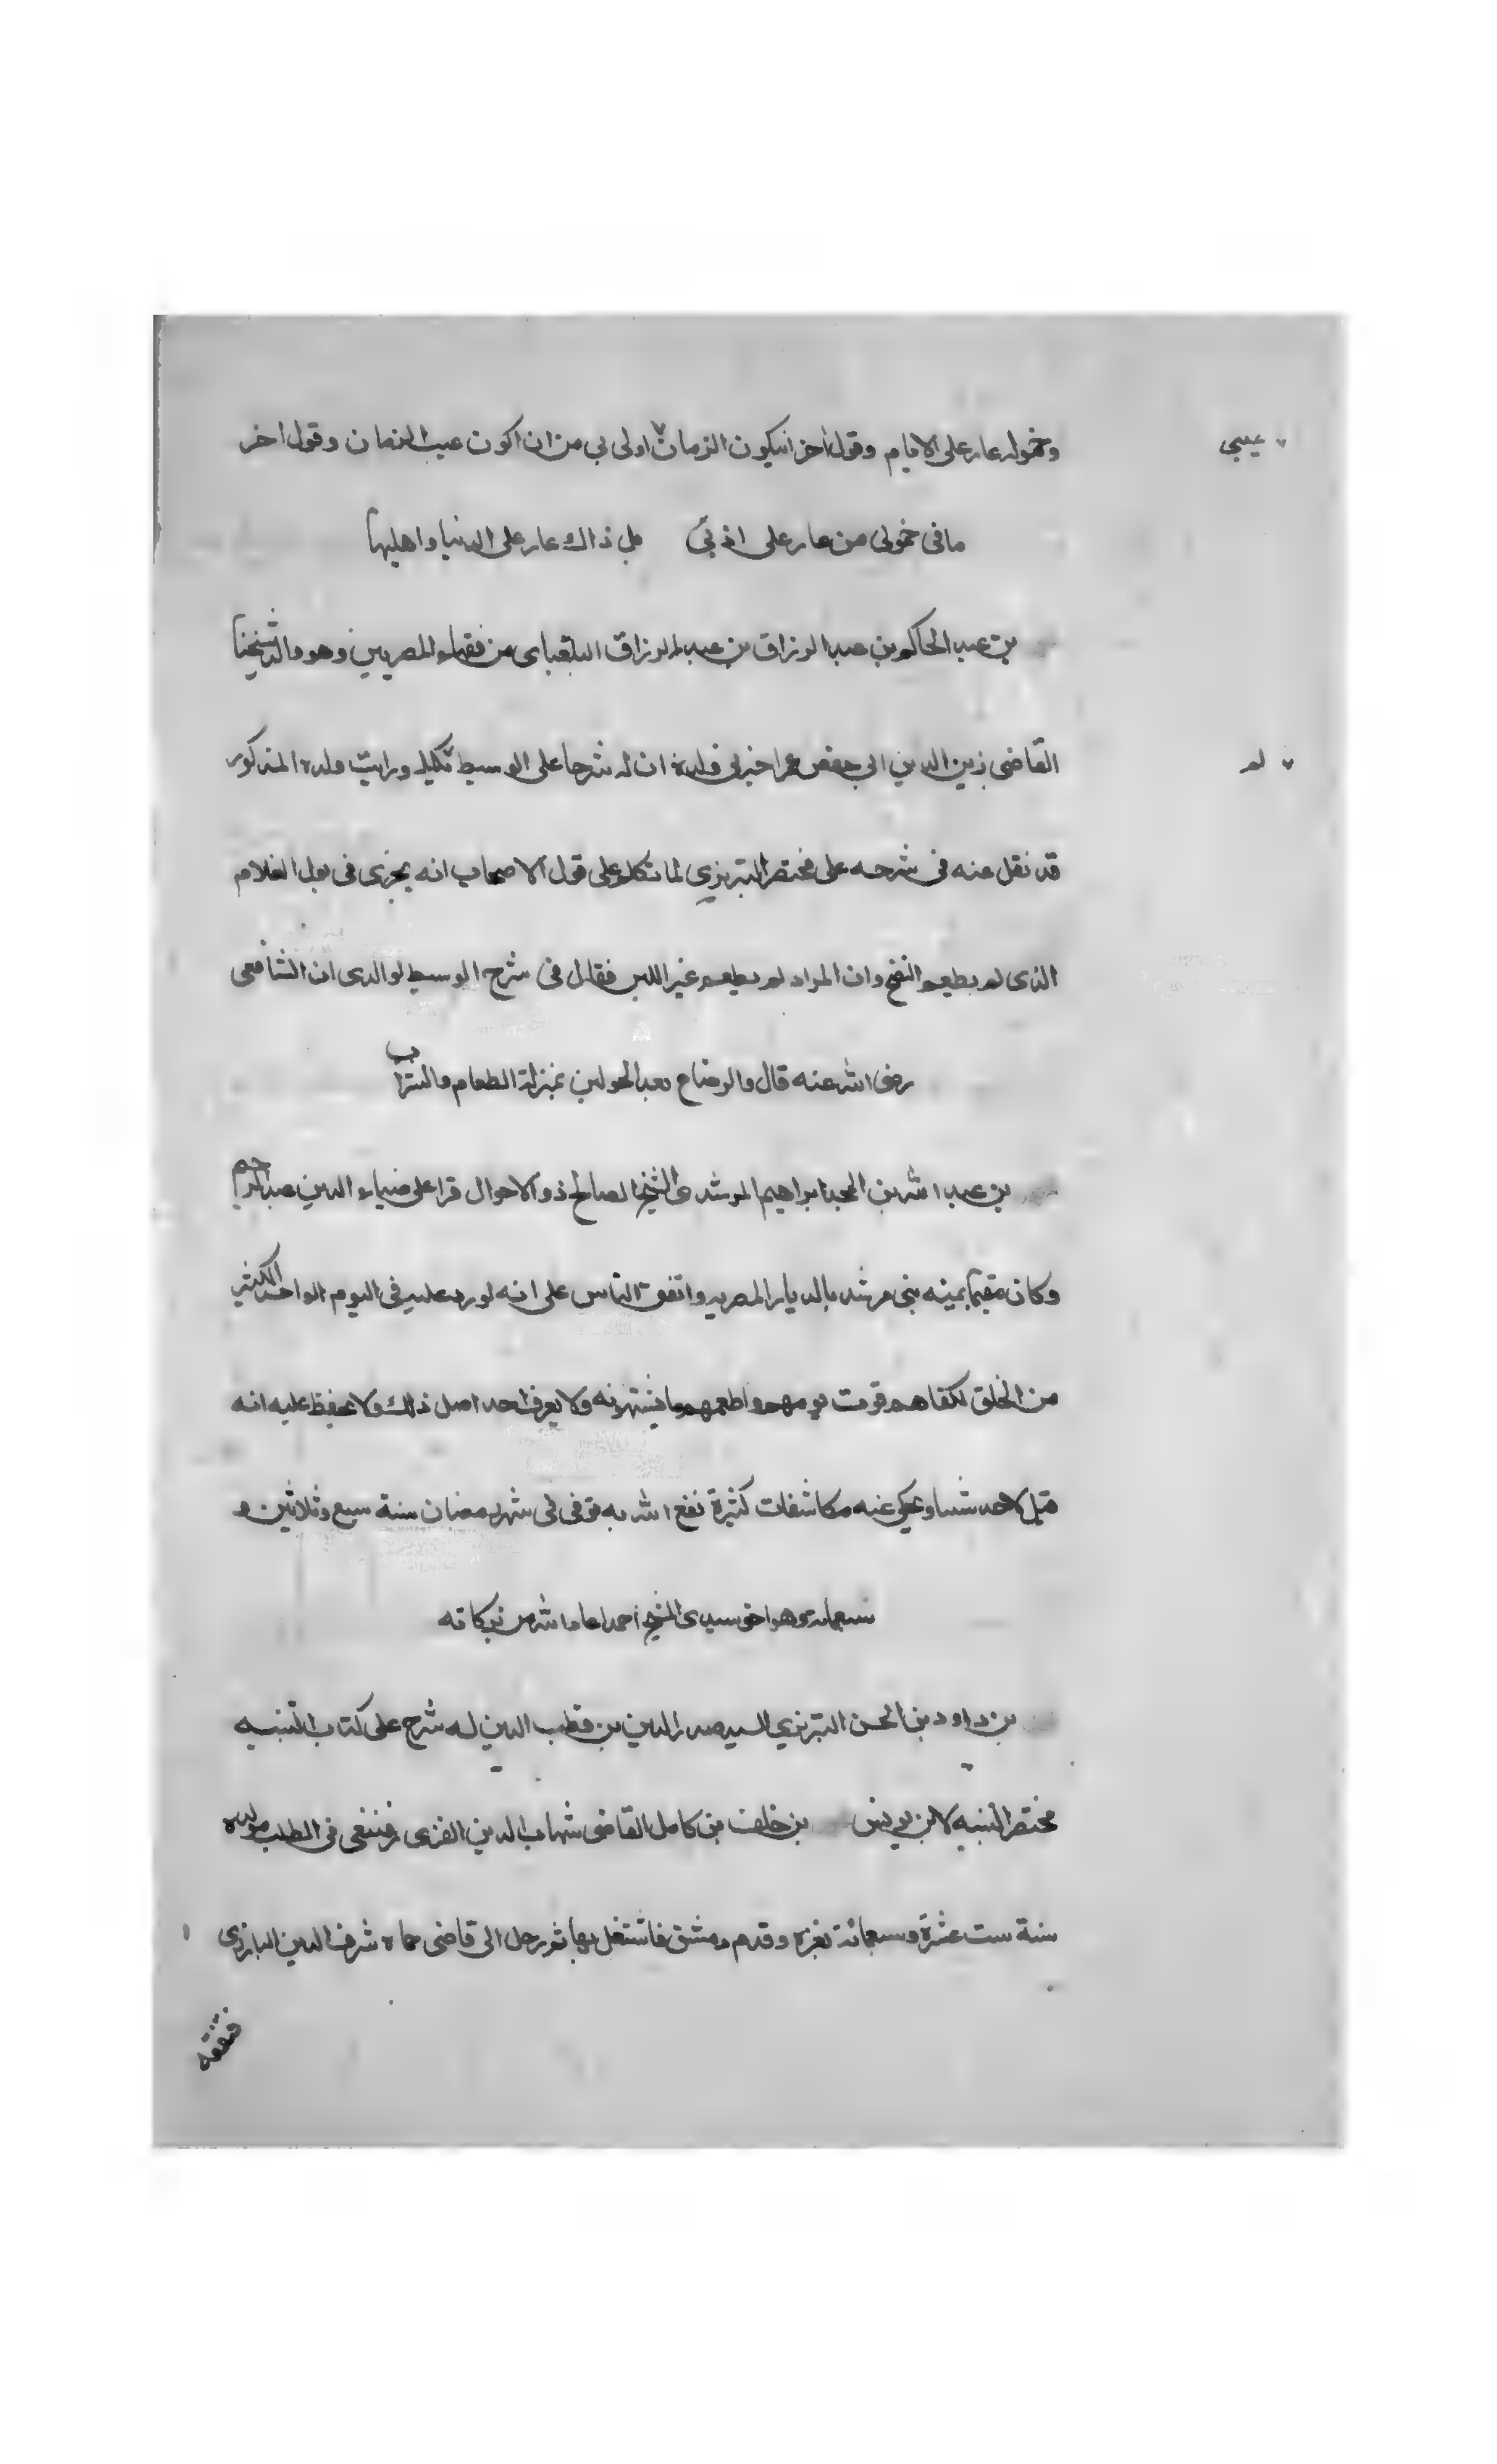 وخموله عار على الايام وقول اخر ايكون الزمان اولى بي من ان اكون عيب الزمان وقول اخر
عيبي
ما في خمولي من عار على ادبي بل ذاك عار على الدنيا واهليها
بن عبد الحاكم بن عبد الرزاق بن عبد الرزاق البلقيائى من فقهاء المصريين وهو والد شيخنا
القاضى زين الدين ابى حفص عمر اخبرنى ولده ان له شرحا على الوسيط تكمله ورايت ولده المذكور
لم
قد نقل عنه في شرحه على مختصر التبريزي لما تكلم على قول الاصحاب انه يجزى في بول الغلام
الذى لم يطعم النضح وان المراد لم يطعم غير اللبن فقال في شرح الوسيط لوالدى ان الشافعى
رضى الله عنه قال والرضاع بعد الحولين بمنزلة الطعام والشراب
بن عبد الله بن المجد ابراهيم المرشدى الشيخ الصالح ذو الاحوال قرا على ضياء الدين عبد الرحيم
وكان مقيما بمنيه بنى مرشد بالديار المصريه واتفق الناس على انه لو ورد عليه في اليوم الواحد الكثير
من الخلق لكفاهم قوت يومهم واطعمهم ما يشتهونه ولا يعرف احد اصل ذلك ولا يحفظ عليه انه
قبل لاحد شيئا ويحكى عنه مكاشفات كثيرة نفع الله به توفى في شهر رمضان سنة سبع وثلاثين و
سبعمائة وهو اخو سيدى الشيخ احمد اعاد الله من بركاته
بن داود بن الحسن التبريزي السيد صدر الدين بن قطب الدين له شرح على كتاب التنبيه
مختصر التنبيه لابن يونس بن خلف بن كامل القاضى شهاب الدين الغزى رفيقى في الطلب مولده
سنة ست عشرة وسبعمائة بغزه وقدم دمشق فاشتغل بها ثم رحل الى قاضى حماه شرف الدين البارزى
فتفقه